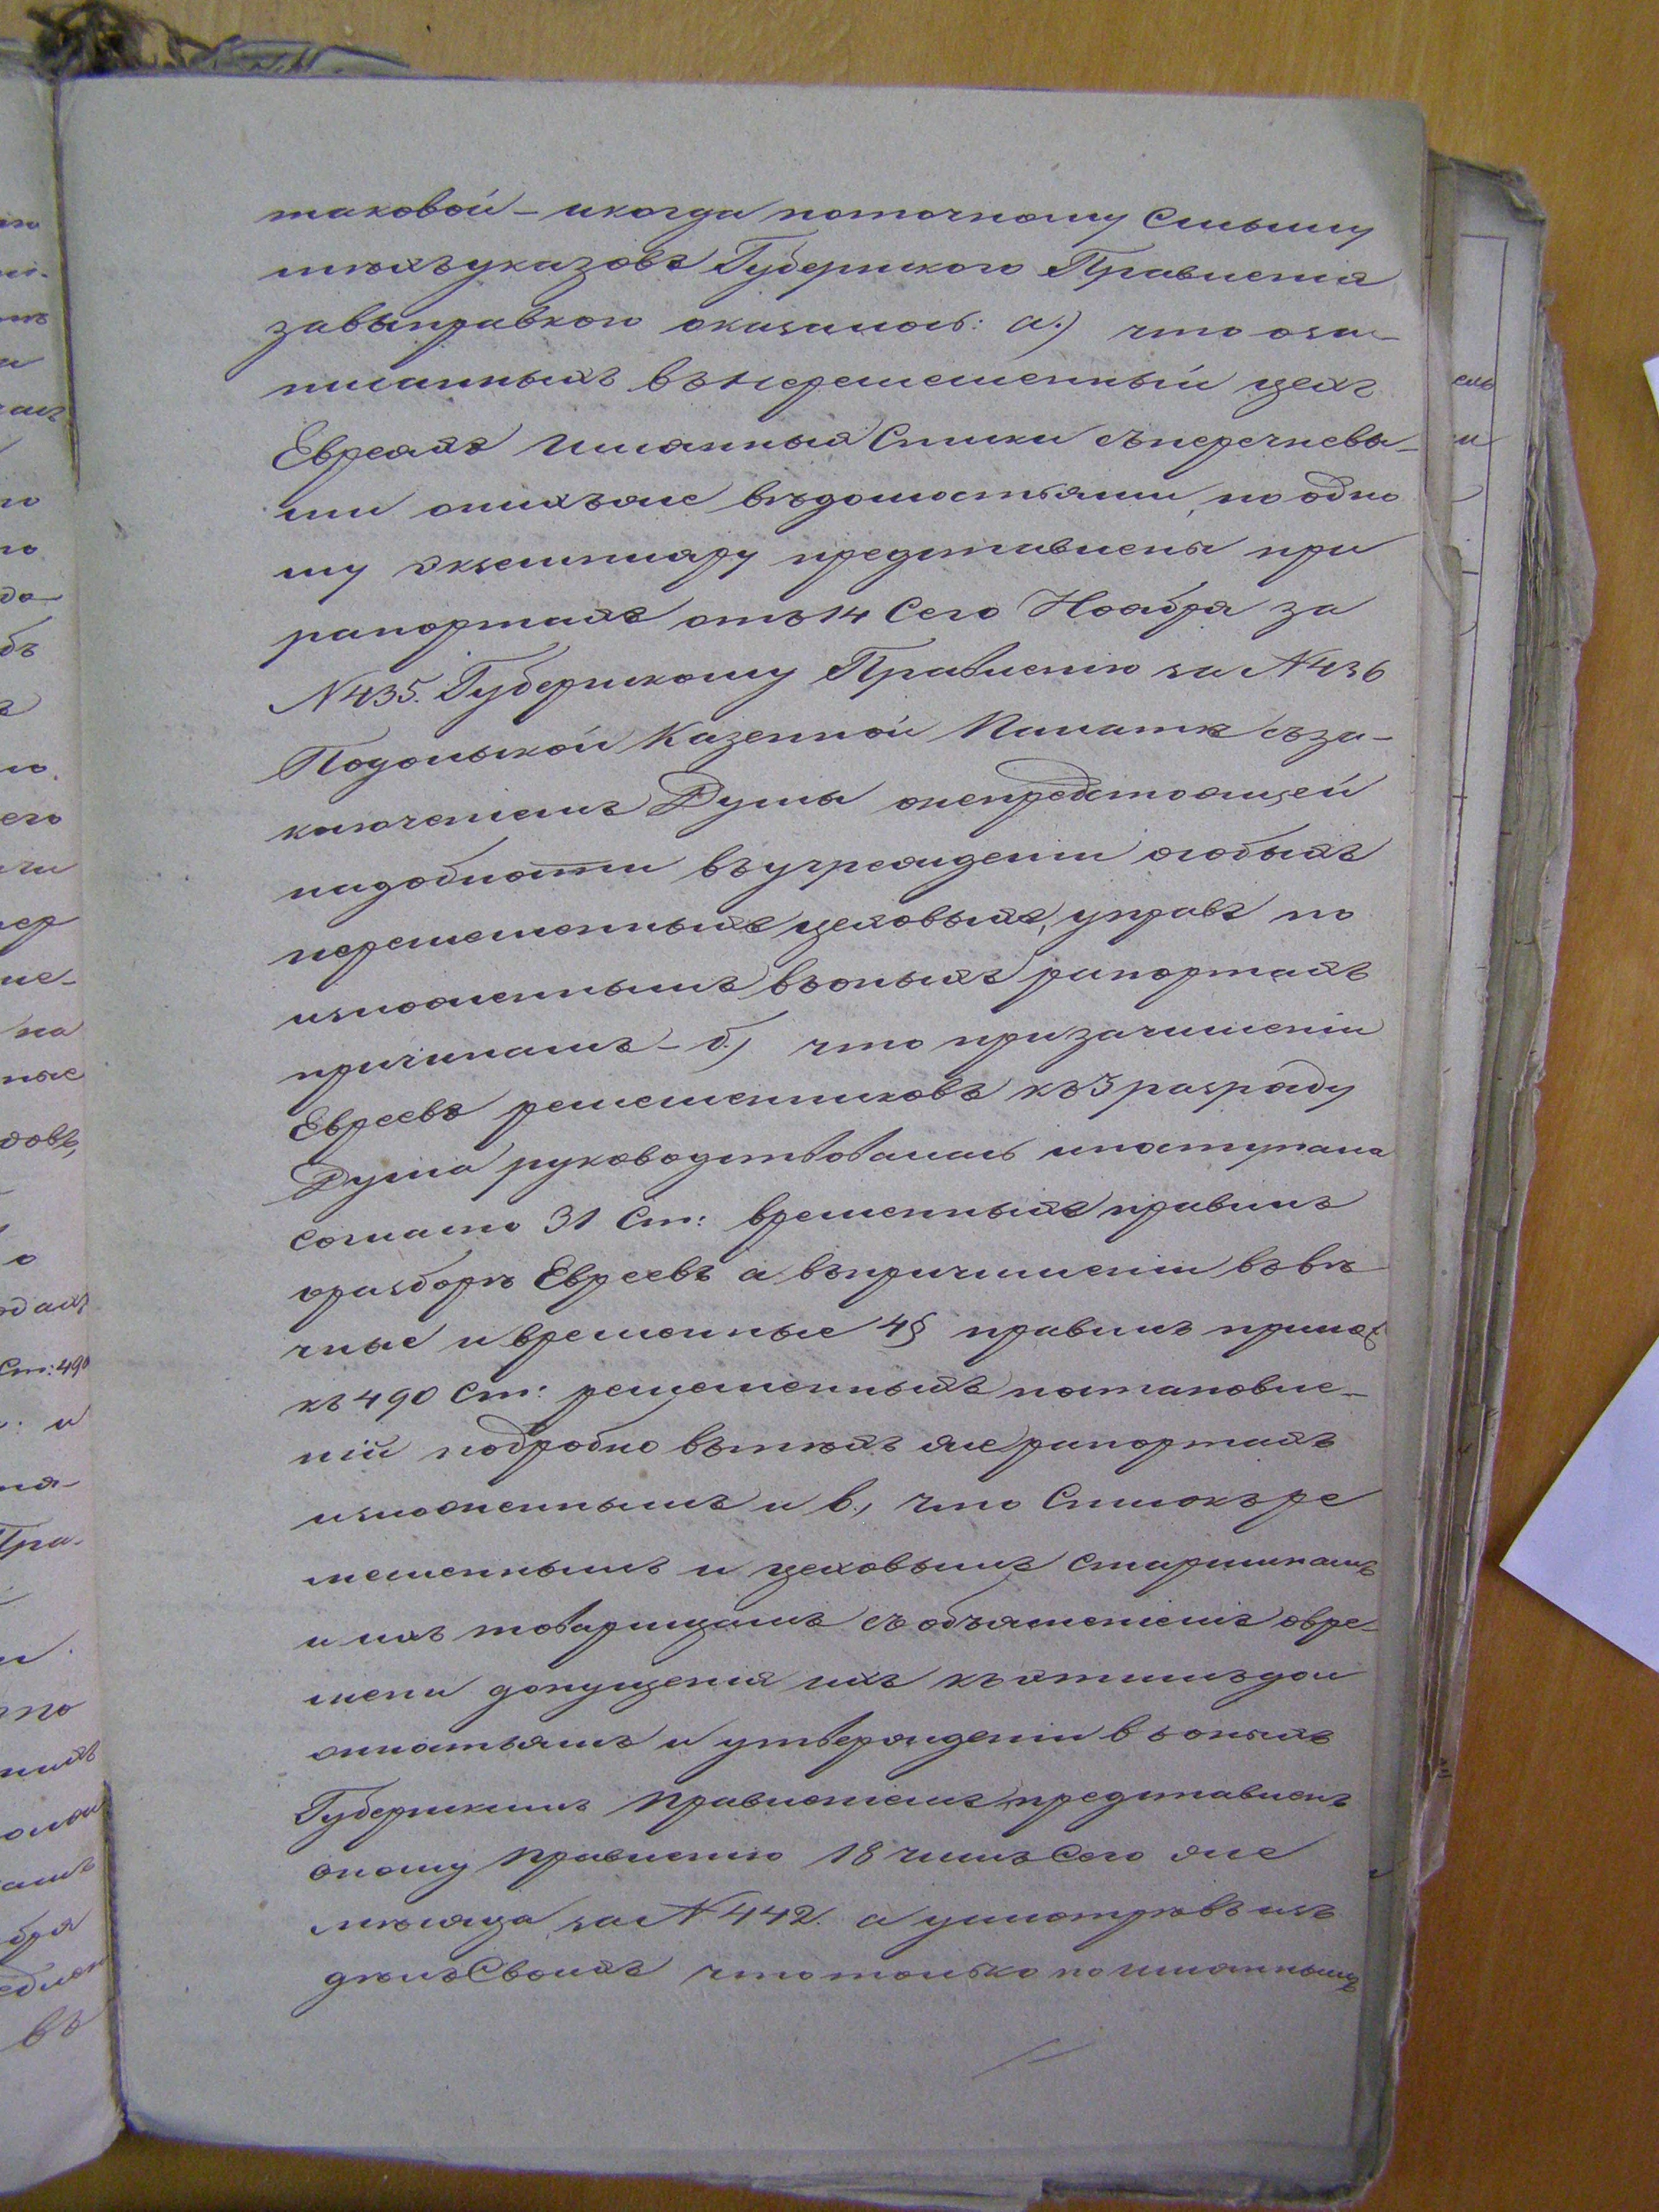 таковой – и когда по точному смыслу
тѣхъ указовъ Губернского Правленія
за выправкою оказалось: а.) что о за-
писанныхъ въ неремесленный цехъ
Евреяхъ Имянныя Списки съ перечневы-
ми о нихъ же вѣдомостьями, по одно
му экземпляру представлены при
рапортахъ отъ 14 Сего Ноября за
№ 435. Губернскому Правленію за № 436
Подольской Казенной Палатѣ съ за-
ключеніемъ Думы о не предстоящей
надобности въ учрежденіи особыхъ
неремесленныхъ цеховыхъ, управъ по
изложеннымъ въ оныхъ рапортахъ
причинамъ – б.) что при зачисленіи
Евреевъ ремесленниковъ къ 3 разряду
Дума руководствовалась и поступала
согласно 31 Ст: временныхъ правилъ
о разборѣ Евреевъ а въ причисленіи въ вѣ
чные и временные 4 § правилъ прилож
къ 490 Ст: ремесленныхъ постановле-
ній подробно въ тѣхъ же рапортахъ
изложеннымъ и в., что Списокъ ре
месленнымъ и цеховымъ старшинамъ
и ихъ товарищамъ съ объясненіемъ о вре-
мени допущенія ихъ къ этимъ дол
жностьямъ и утвержденіи въ оныхъ
Губернскимъ Правленіемъ, представленъ
оному Правленію 18 числъ Сего же
мѣсяца, за № 442. а усмотрѣвъ изъ
дѣлъ Своихъ что только по имяннымъ